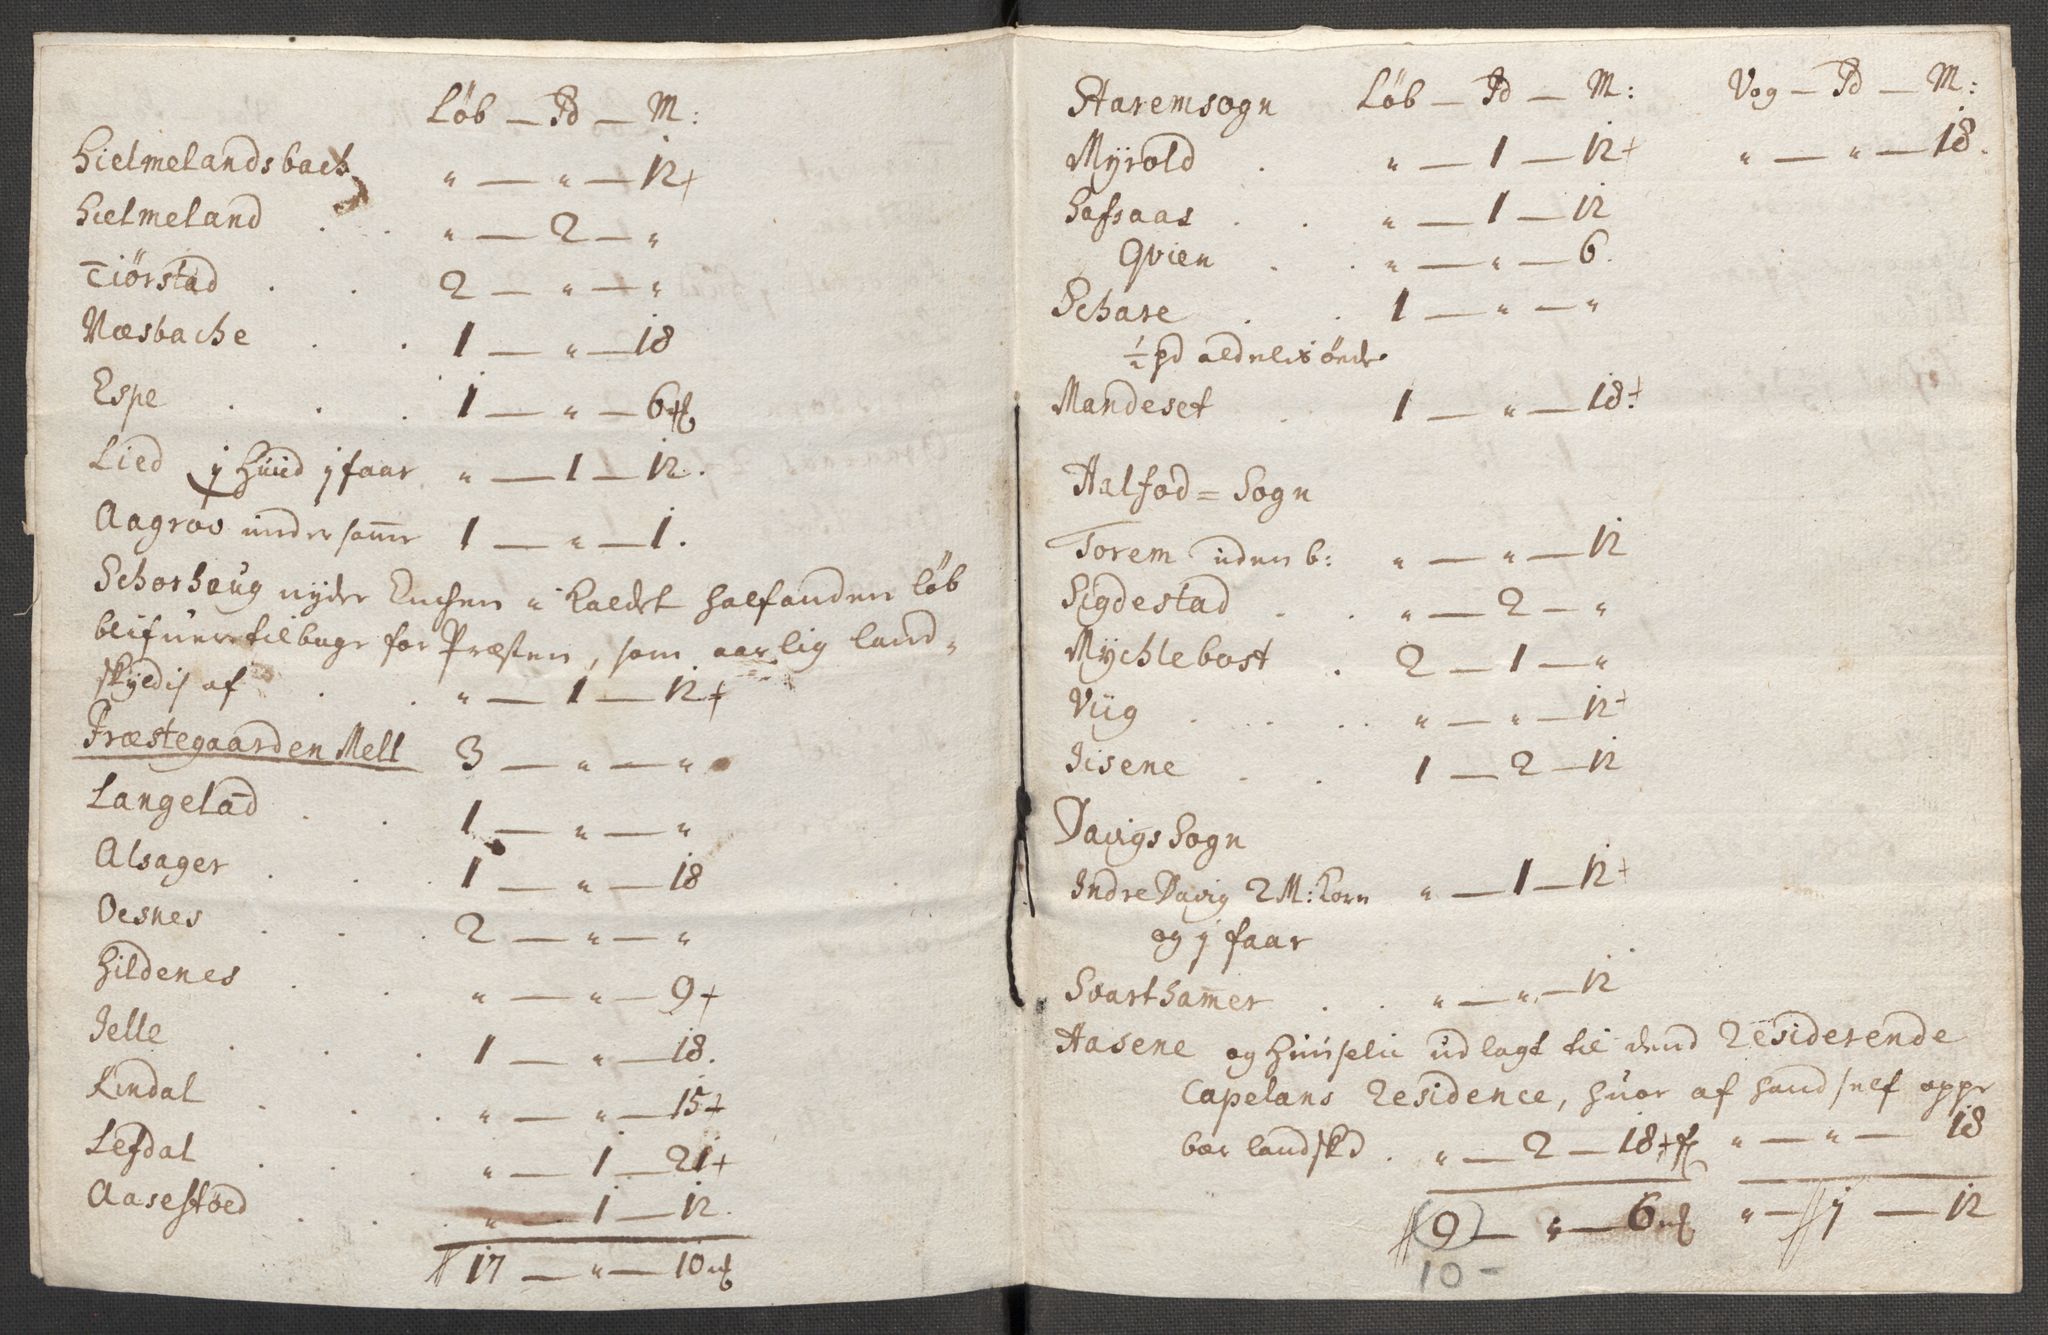 Løb — Pd — M:
Hielmelandsbach „ — „ — 12+
Hielmeland . . „ — 2 — „
Tiørstad . . 2 — „ — „
Næsbache . . 1 — „ — 18
Espe . . . 1 — „ — 6+
Lied j Huud j faar „ — 1 — 12.
Aagrov under samme 1 — „ — 1.
Schorhoug nyder Enchen i kaldet halfanden løb
blifuer tilbage for Præsten, som aarlig land-
skyldis af . . „ — 1 — 12+
Præstegaarden Mell 3 — „ — „
Langeland . . 1 — „ — „
Alsager . . . 1 — „ — 18
Oesnes . . . 2 — „ — „
Hildenes . . „ — „ — 9+
Ielle . . . 1 — „ — 18.
Kindal . . . „ — „ — 15+
Lefdal . . „ — 1 — 21+
Aasestøed . . . „ — 1 — 12.
17 — „ — 10
Staremsogn Løb — Pd — M: Vog — Pd — M:
Myrold . „ — 1 — 12+ „ — „ — 18.
Hafsaas . . „ — 1 — 12
Qvien . . „ — „ — 6.
Schare . . 1 — „ — „
½ pd
Mandeset . 1 — „ — 18+
Aalfod = Sogn
Torem uden b: „ — „ — 12
Sigdestad . . „ — 2 — „
Mychlebost . 2 — 1 — „
Viig . . . „ — „ — 12+
Iisene . . 1 — 2 — 12
Davigs Sogn
Indre Davig 2 M: korn „ — 1 — 12+
og j faar
Svarthamer . . „ — „ — 12
Aasene og Huuselii udlagt til dend Residerende
Capelans Residence, huor af hand self oppe
bær landskd . „ — 2 — 18+ „ — „ — 18
9 — „ — 6 „ — 1 — 12
10 –